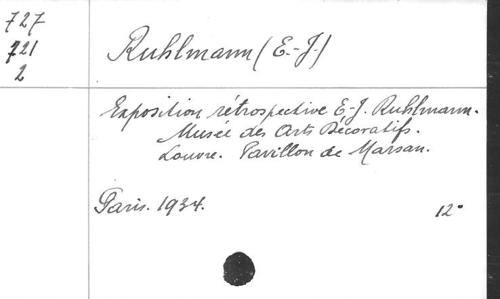 727
721
2
Ruhlmann (E.-J.)
Exposition rétrospective E-J. Ruhlmann.
Musée des Arts Décoratifs.
Louvre. Pavillon de Marsan.
Paris. 1934.
12°